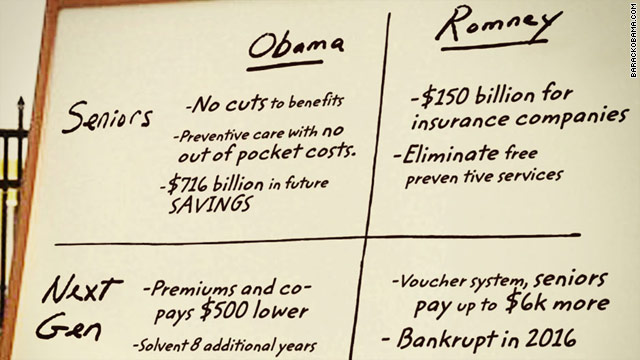 Obama
Romney
Seniors
-No cuts to benefits
-Preventive care with no
out of pocket costs.
-$716 billion in future
SAVINGS
-$150 billion for
insurance companies
-Eliminate free
preven tive services
Next
Gen
-Premiums and co-
pays $500 lower
-Solvent 8 additional years
-Voucher system, seniors
pay up to $6k more
- Bankrupt in 2016
BARACKOBAMA.COM